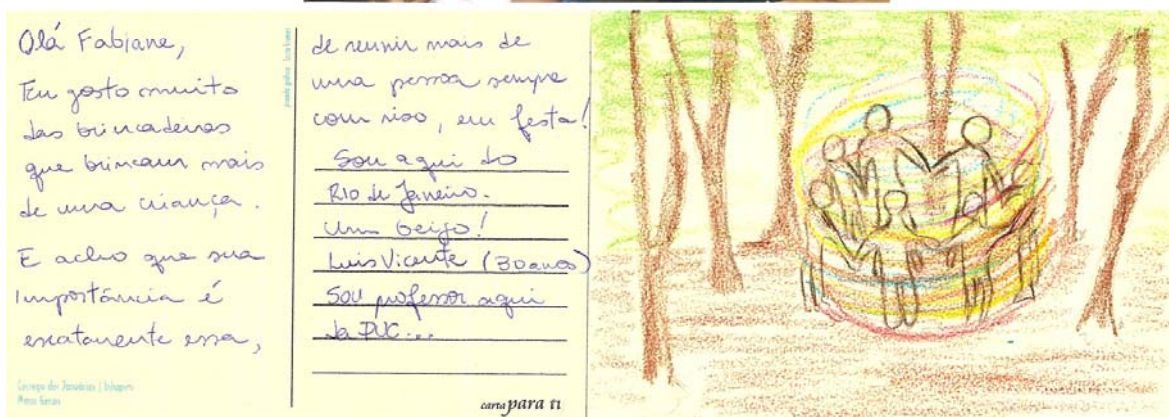 Olá Fabiane,
Eu gosto muito
das brincadeiras
que brincam mais
de uma criança.
E acho que sua
importância é
exatamente essa,
de reunir mais de
uma pessoa sempre
com riso, em festa!
Sou aqui do
Rio de Janeiro.
Um beijo!
Luis Vicente (30 anos)
Sou professor aqui
da PUC...
carta para ti